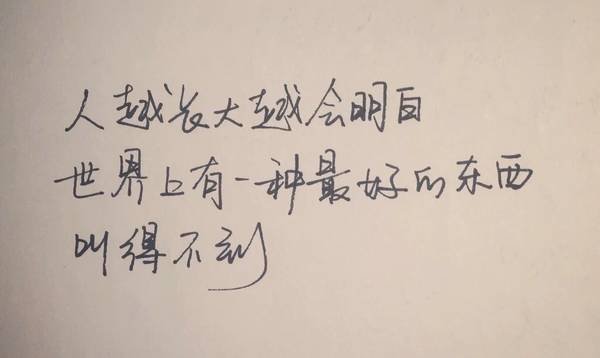 人越长大越会明白
世界上有一种最好的东西
叫得不到